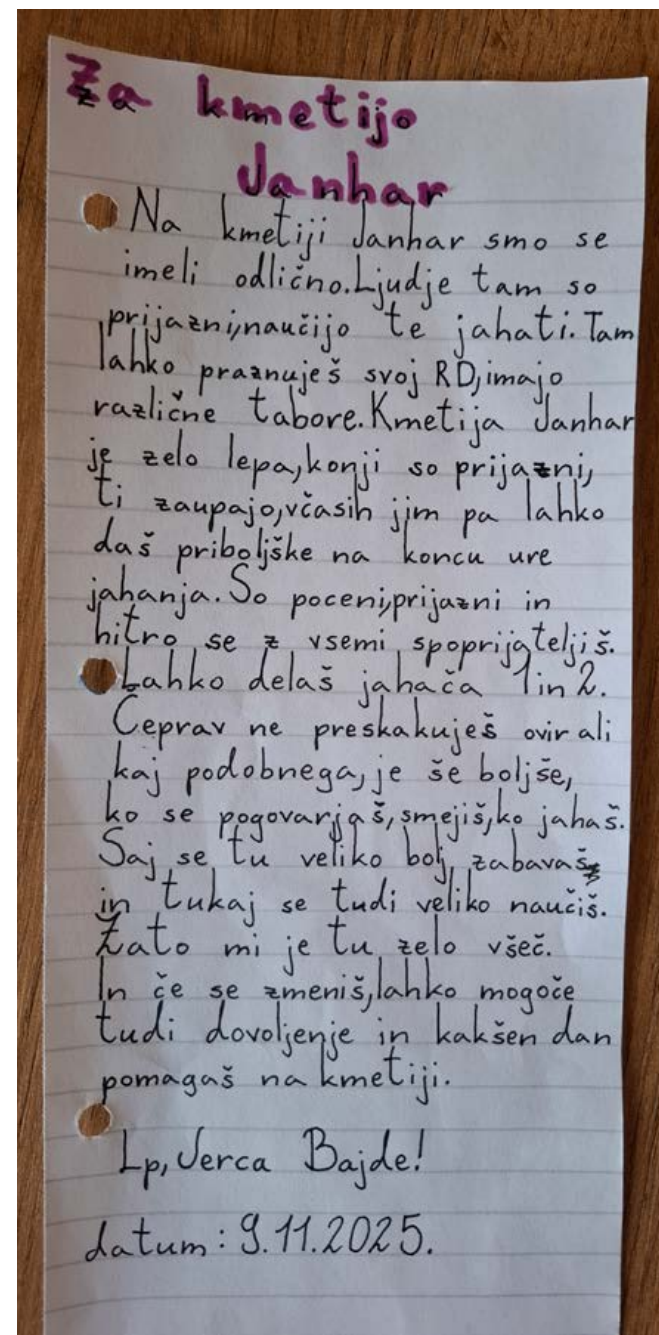 Za kmetijo
Janhar
Na kmetiji Janhar smo se
imeli odlično. Ljudje tam so
prijazni, naučijo te jahati. Tam
lahko praznuješ svoj RD, imajo
različne tabore. Kmetija Janhar
je zelo lepa, konji so prijazni,
ti zaupajo, včasih jim pa lahko
daš priboljške na koncu ure
jahanja. So poceni, prijazni in
hitro se z vsemi spoprijateljiš.
Lahko delaš jahača 1 in 2.
Čeprav ne preskakuješ ovir ali
kaj podobnega, je še boljše,
ko se pogovarjaš, smejiš, ko jahaš.
Saj se tu veliko bolj zabavaš
in tukaj se tudi veliko naučiš.
Zato mi je tu zelo všeč.
In če se zmeniš, lahko mogoče
tudi dovoljenje in kakšen dan
pomagaš na kmetiji.
Lp, Jerca Bajde!
datum: 9.11.2025.